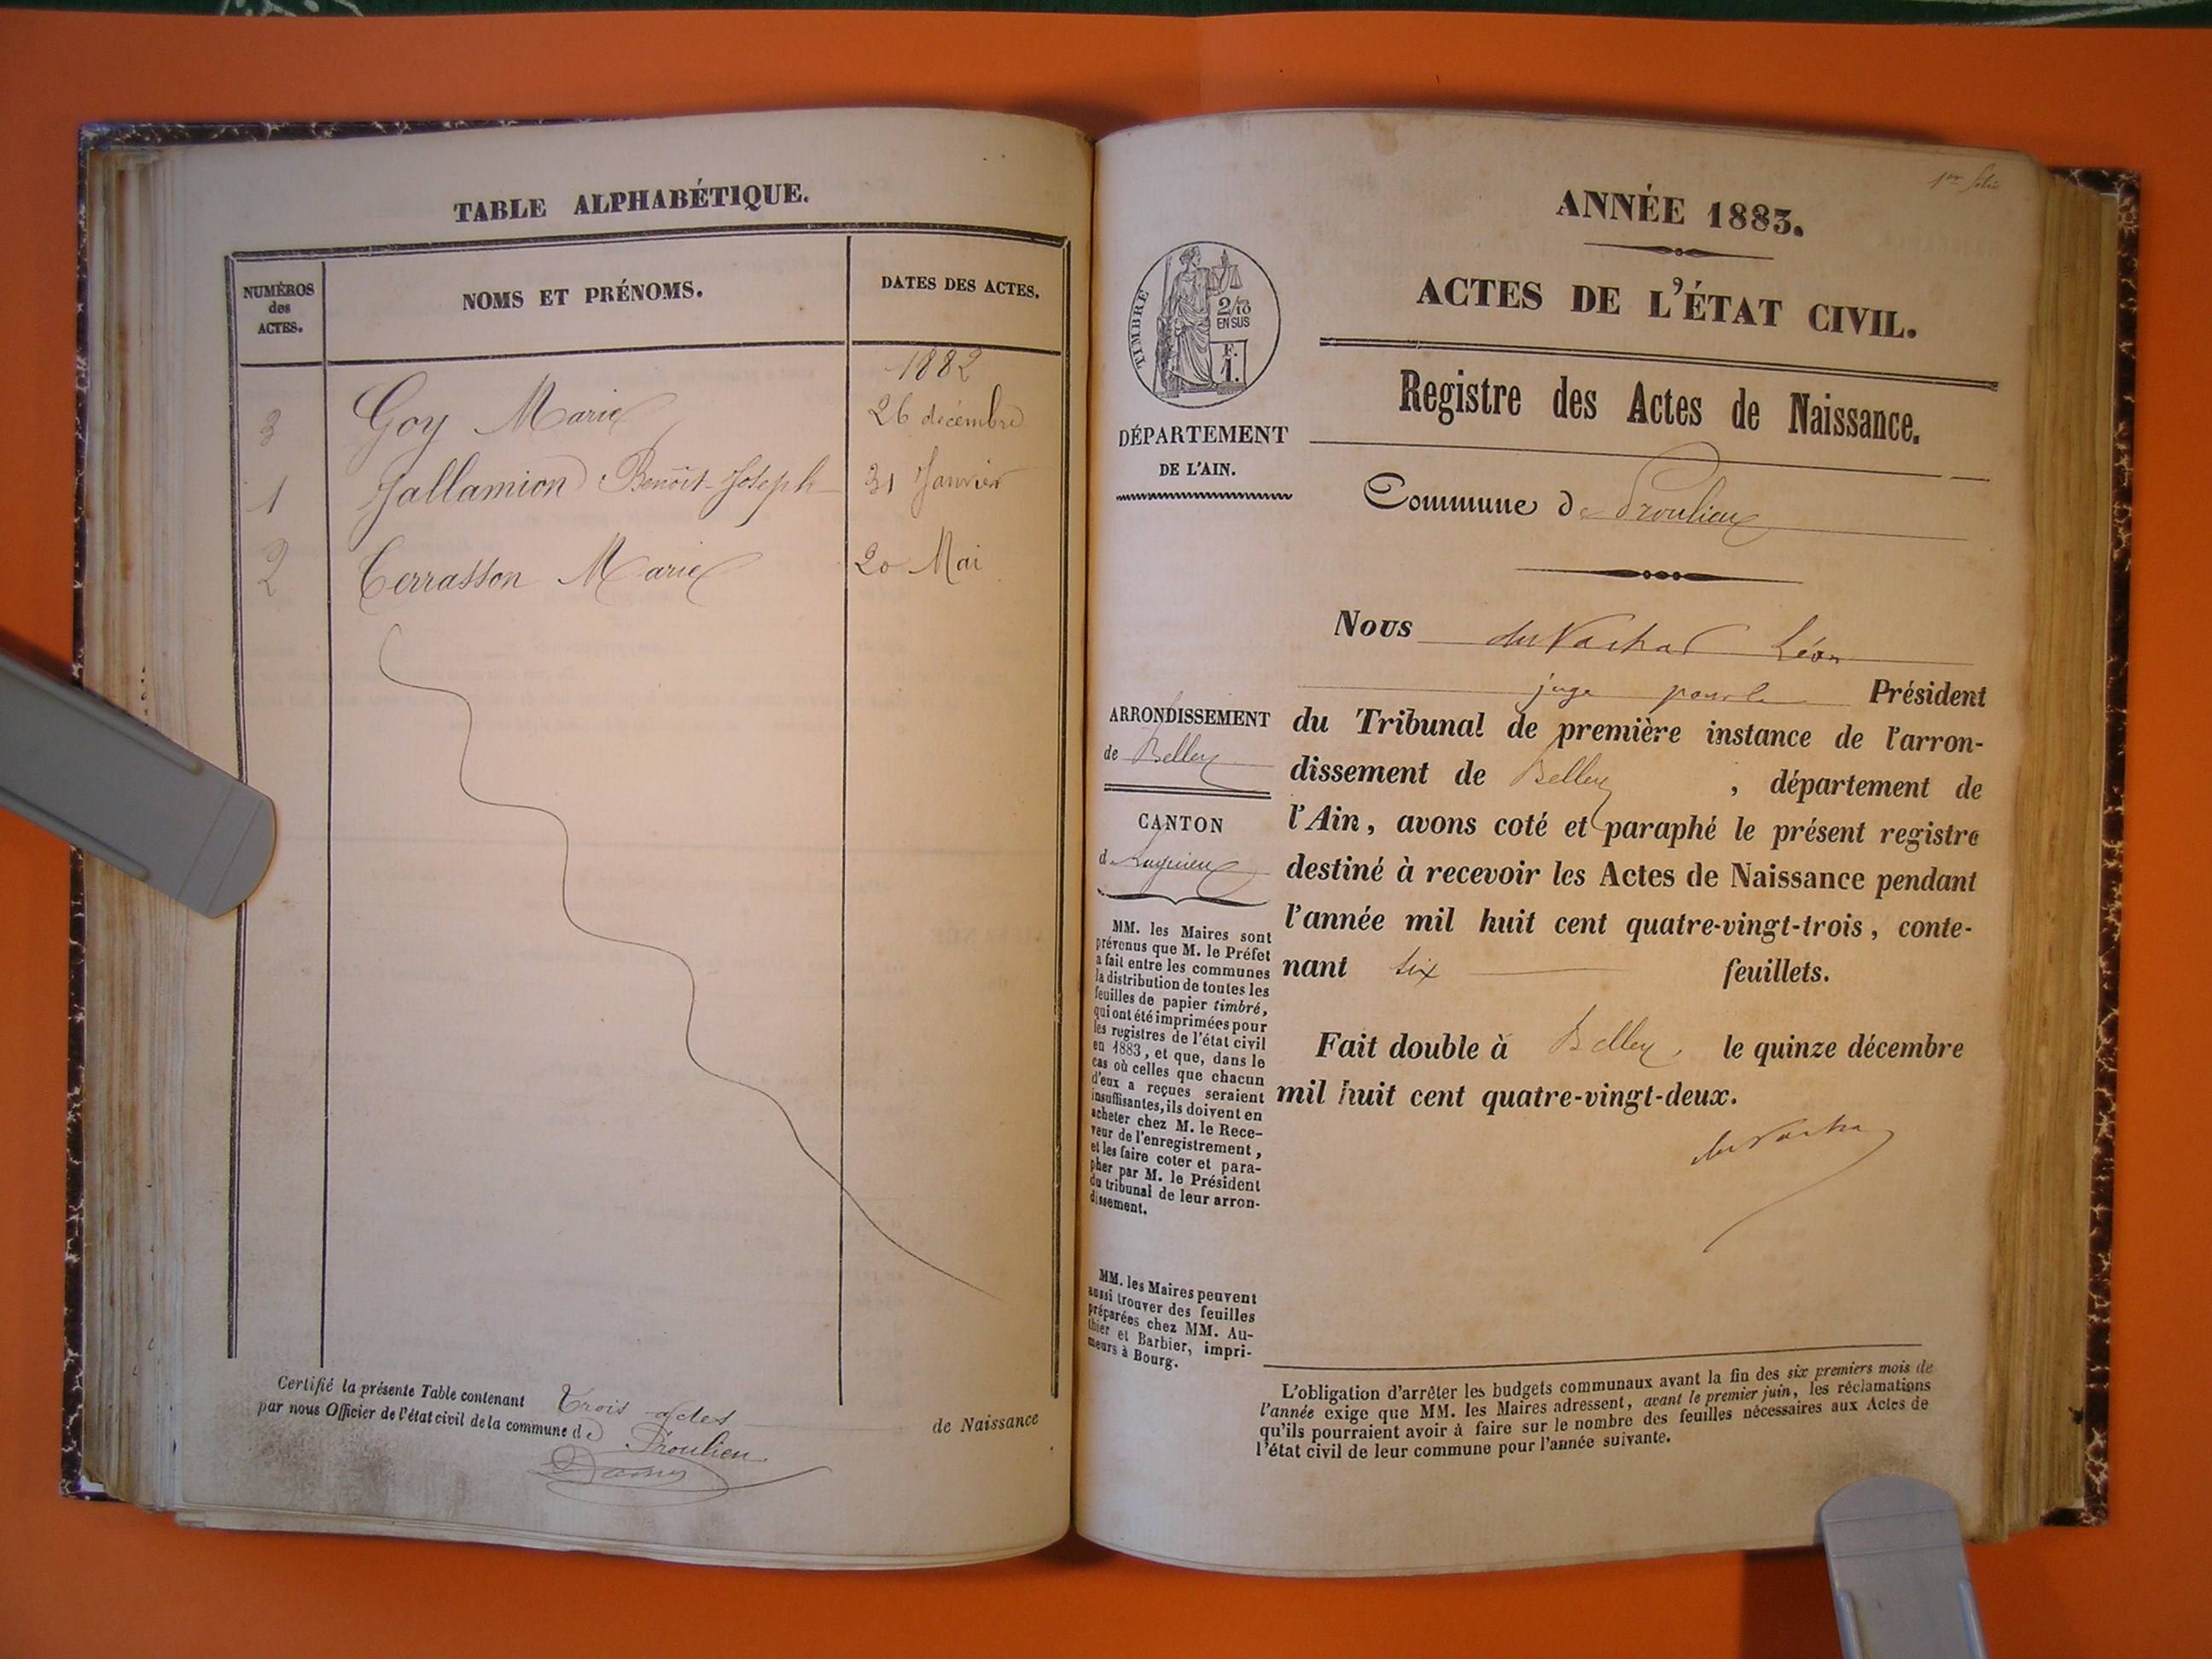 TABLE ALPHABÉTIQUE.
NUMÉROS
des
ACTES.
NOMS ET PRÉNOMS.
DATES DES ACTES.
1882
3 Goy Marie 26 décembre
1 Jallamion Benoit-Joseph 31 Janvier
2 Terrasson Marie 20 Mai
Certifié la présente Table contenant Trois actes de Naissance
par nous Officier de l'état civil de la commune de Proulieu
1er
ANNÉE 1883.
ACTES DE L'ÉTAT CIVIL.
TIMBRE
2/10
EN SUS
F.
1.
DÉPARTEMENT
DE L'AIN.
Registre des Actes de Naissance.
Commune de Proulieu
ARRONDISSEMENT
de Belley
CANTON
de Lagnieu
MM. les Maires sont
prévenus que M. le Préfet
a fait entre les communes
la distribution de toutes les
feuilles de papier timbré,
qui ont été imprimées pour
les registres de l'état civil
en 1883, et que, dans le
cas où celles que chacun
d'eux a reçues seraient
insuffisantes, ils doivent en
acheter chez M. le Rece-
veur de l'enregistrement,
et les faire coter et para-
pher par M. le Président
du tribunal de leur arron-
dissement.
MM. les Maires peuvent
aussi trouver des feuilles
préparées chez MM. Au-
thier et Barbier, impri-
meurs à Bourg.
Nous Léon
juge pour le Président
du Tribunal de première instance de l'arron-
dissement de Belley, département de
l'Ain, avons coté et paraphé le présent registre
destiné à recevoir les Actes de Naissance pendant
l'année mil huit cent quatre-vingt-trois, conte-
nant six feuillets.
Fait double à Belley, le quinze décembre
mil huit cent quatre-vingt-deux.
L'obligation d'arrêter les budgets communaux avant la fin des six premiers mois de
l'année exige que MM. les Maires adressent, avant le premier juin, les réclamations
qu'ils pourraient avoir à faire sur le nombre des feuilles nécessaires aux Actes de
l'état civil de leur commune pour l'année suivante.